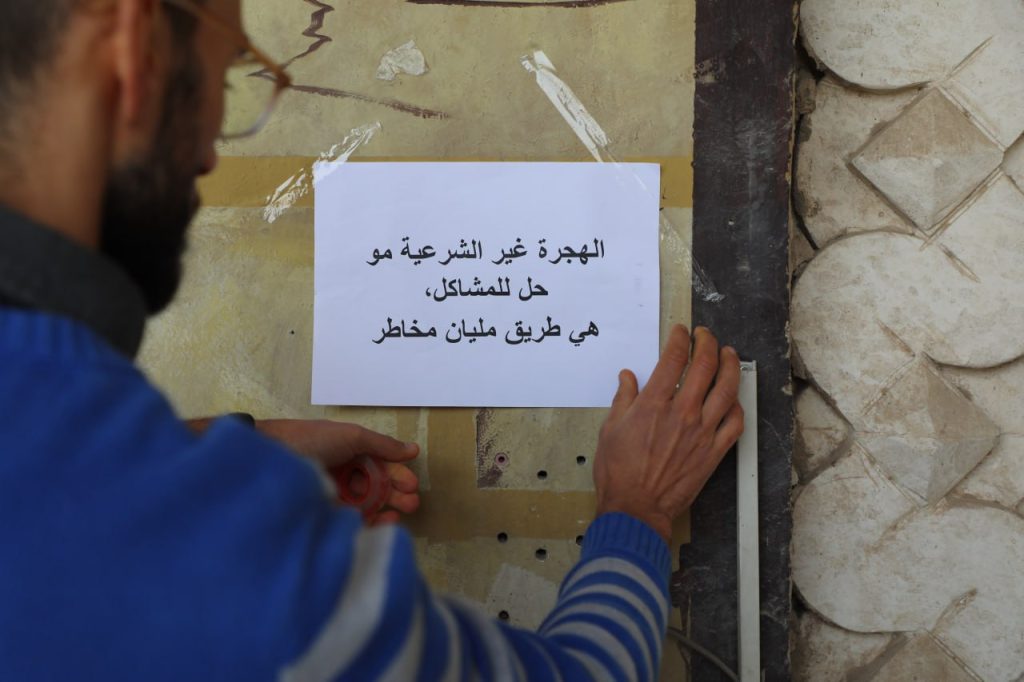 الهجرة غير الشرعية مو
حل للمشاكل،
هي طريق مليان مخاطر